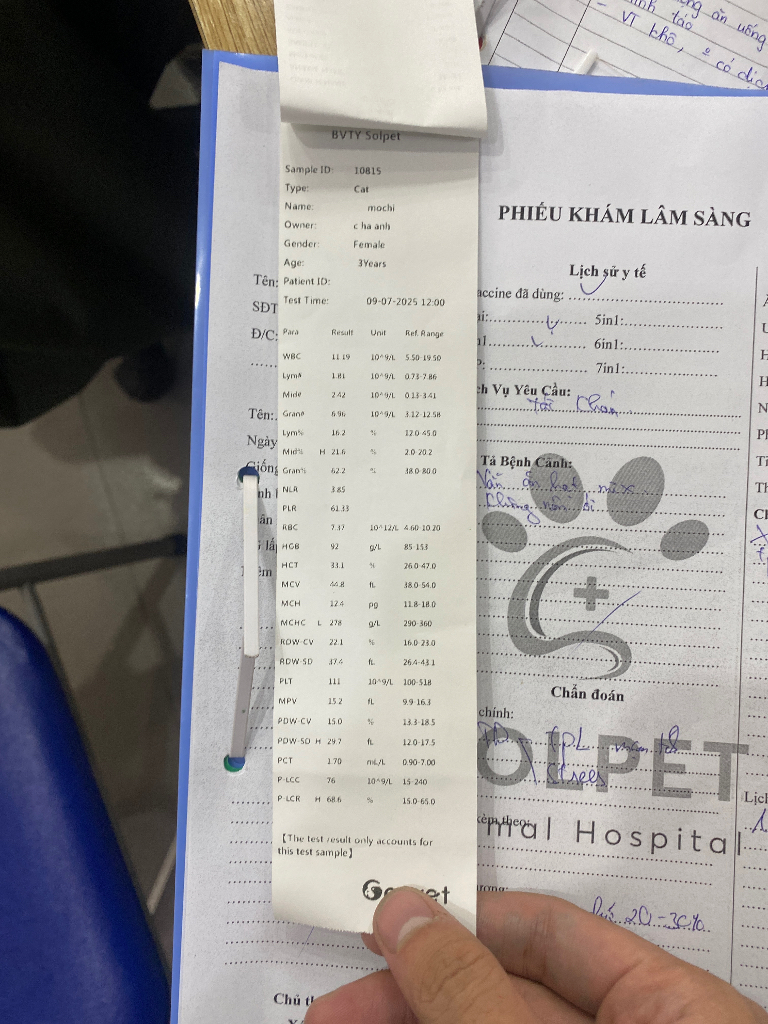 BVTY Solpet
Sample ID: 10815
Type: Cat
Name: mochi
Owner: c ha anh
Gender: Female
Age: 3Years
Patient ID:
Test Time: 09-07-2025 12:00
Para Result Unit Ref. Range
WBC 11.19 10^9/L 5.50-19.50
Lym# 1.81 10^9/L 0.73-7.86
Mid# 2.42 10^9/L 0.13-3.41
Gran# 6.96 10^9/L 3.12-12.58
Lym% 16.2 % 12.0-45.0
Mid% H 21.6 % 2.0-20.2
Gran% 62.2 % 38.0-80.0
NLR 3.85
PLR 61.33
RBC 7.37 10^12/L 4.60-10.20
HGB 92 g/L 85-153
HCT 33.1 % 26.0-47.0
MCV 44.8 fL 38.0-54.0
MCH 12.4 pg 11.8-18.0
MCHC L 278 g/L 290-360
RDW-CV 22.1 % 16.0-23.0
RDW-SD 37.4 fL 26.4-43.1
PLT 111 10^9/L 100-518
MPV 15.2 fL 9.9-16.3
PDW-CV 15.0 % 13.3-18.5
PDW-SD H 29.7 fL 12.0-17.5
PCT 1.70 mL/L 0.90-7.00
P-LCC 76 10^9/L 15-240
P-LCR H 68.6 % 15.0-65.0
【The test result only accounts for
this test sample】
ăn uống
táo
VT khô, có dịch
PHIẾU KHÁM LÂM SÀNG
Lịch sử y tế
accine đã dùng:
5in1:
6in1:
7in1:
ch Vụ Yêu Cầu:
Tả Bệnh Cảnh:
Chẩn đoán
chính:
kèm theo:
OLPET
mal Hospital
20-30%
Tên:
SĐT
Đ/C:
Tên:
Ngày
Giống
Lịch
Chủ th